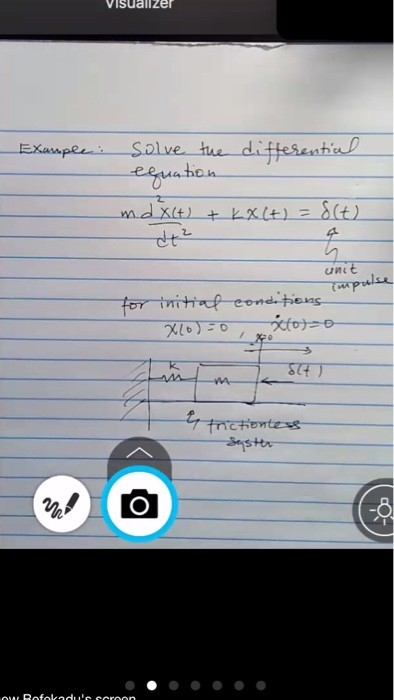 Visualizer
Example: Solve the differential
equation
m d²x(t)/dt² + kx(t) = δ(t)
unit
impulse
for initial conditions
x(0)=0 , ẋ(0)=0
x=0
k
m
δ(t)
frictionless
system
ow Rofokadu's screen